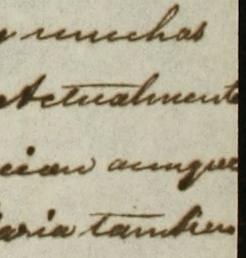 y muchas
Actualmente
cion aunque
daria tambien